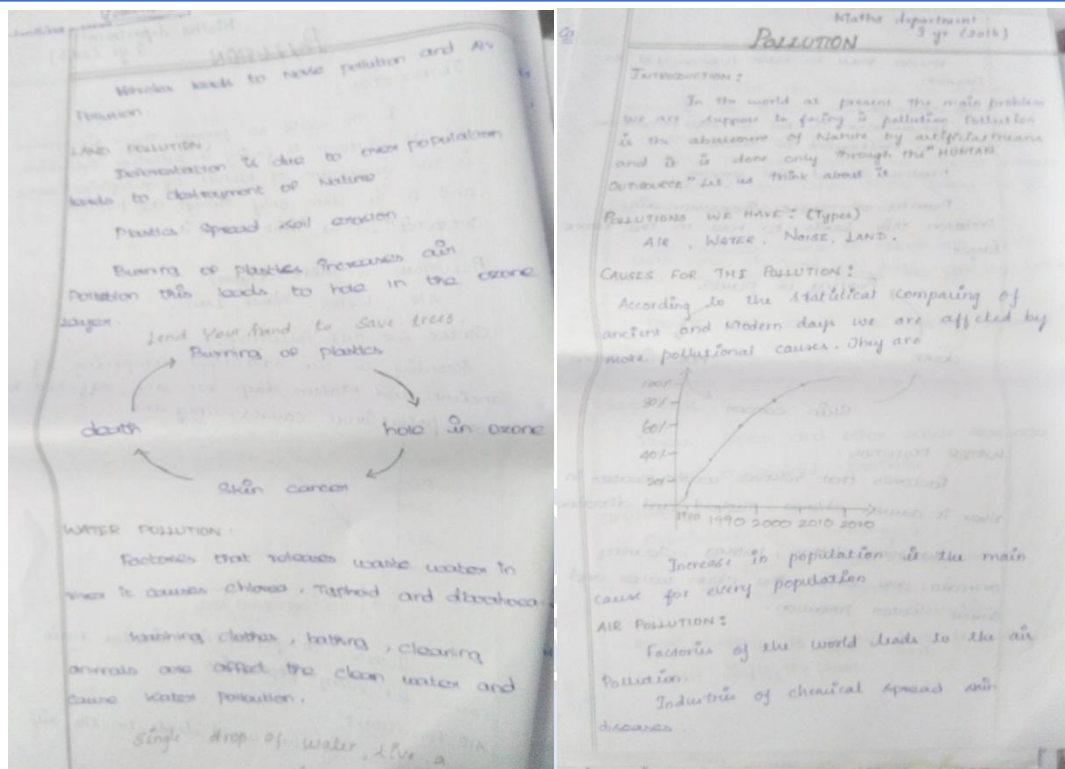 Vehicles leads to Noise pollution and Air
Pollution.
LAND POLLUTION.
Deforestation is due to over population
leads to destroyment of Nature
Plastics Spread soil erosion
Burning of plastics increases air
Pollution this leads to hole in the ozone
layer.
Lend Your hand to save trees
Burning of plastics
death
hole in ozone
Skin cancer
WATER POLLUTION.
Factories that releases waste water in
river it causes cholrea, Typhoid and
Washing clothes, bathing, cleaning
animals are affect the clean water and
cause water pollution.
Single drop of water, live a
Maths department
3 yr
POLLUTION
INTRODUCTION:
In the world at present the main problem
we are suppose to facing is pollution Pollution
is the abusement of Nature by artificial means
and it is done only through the "HUMAN
OUTSOURCE" Let us think about it
POLLUTIONS WE HAVE: (Types)
AIR, WATER, NOISE, LAND.
CAUSES FOR THE POLLUTION:
According to the statistical comparing of
ancient and Modern days we are affcted by
more pollutional causes. They are
100%
80%
60%
40%
20%
1990 2000 2010 2010
Increase in population is the main
cause for every population
AIR POLLUTION:
Factories of the world leads to the air
Pollution.
Industries of chemical spread skin
diseases.